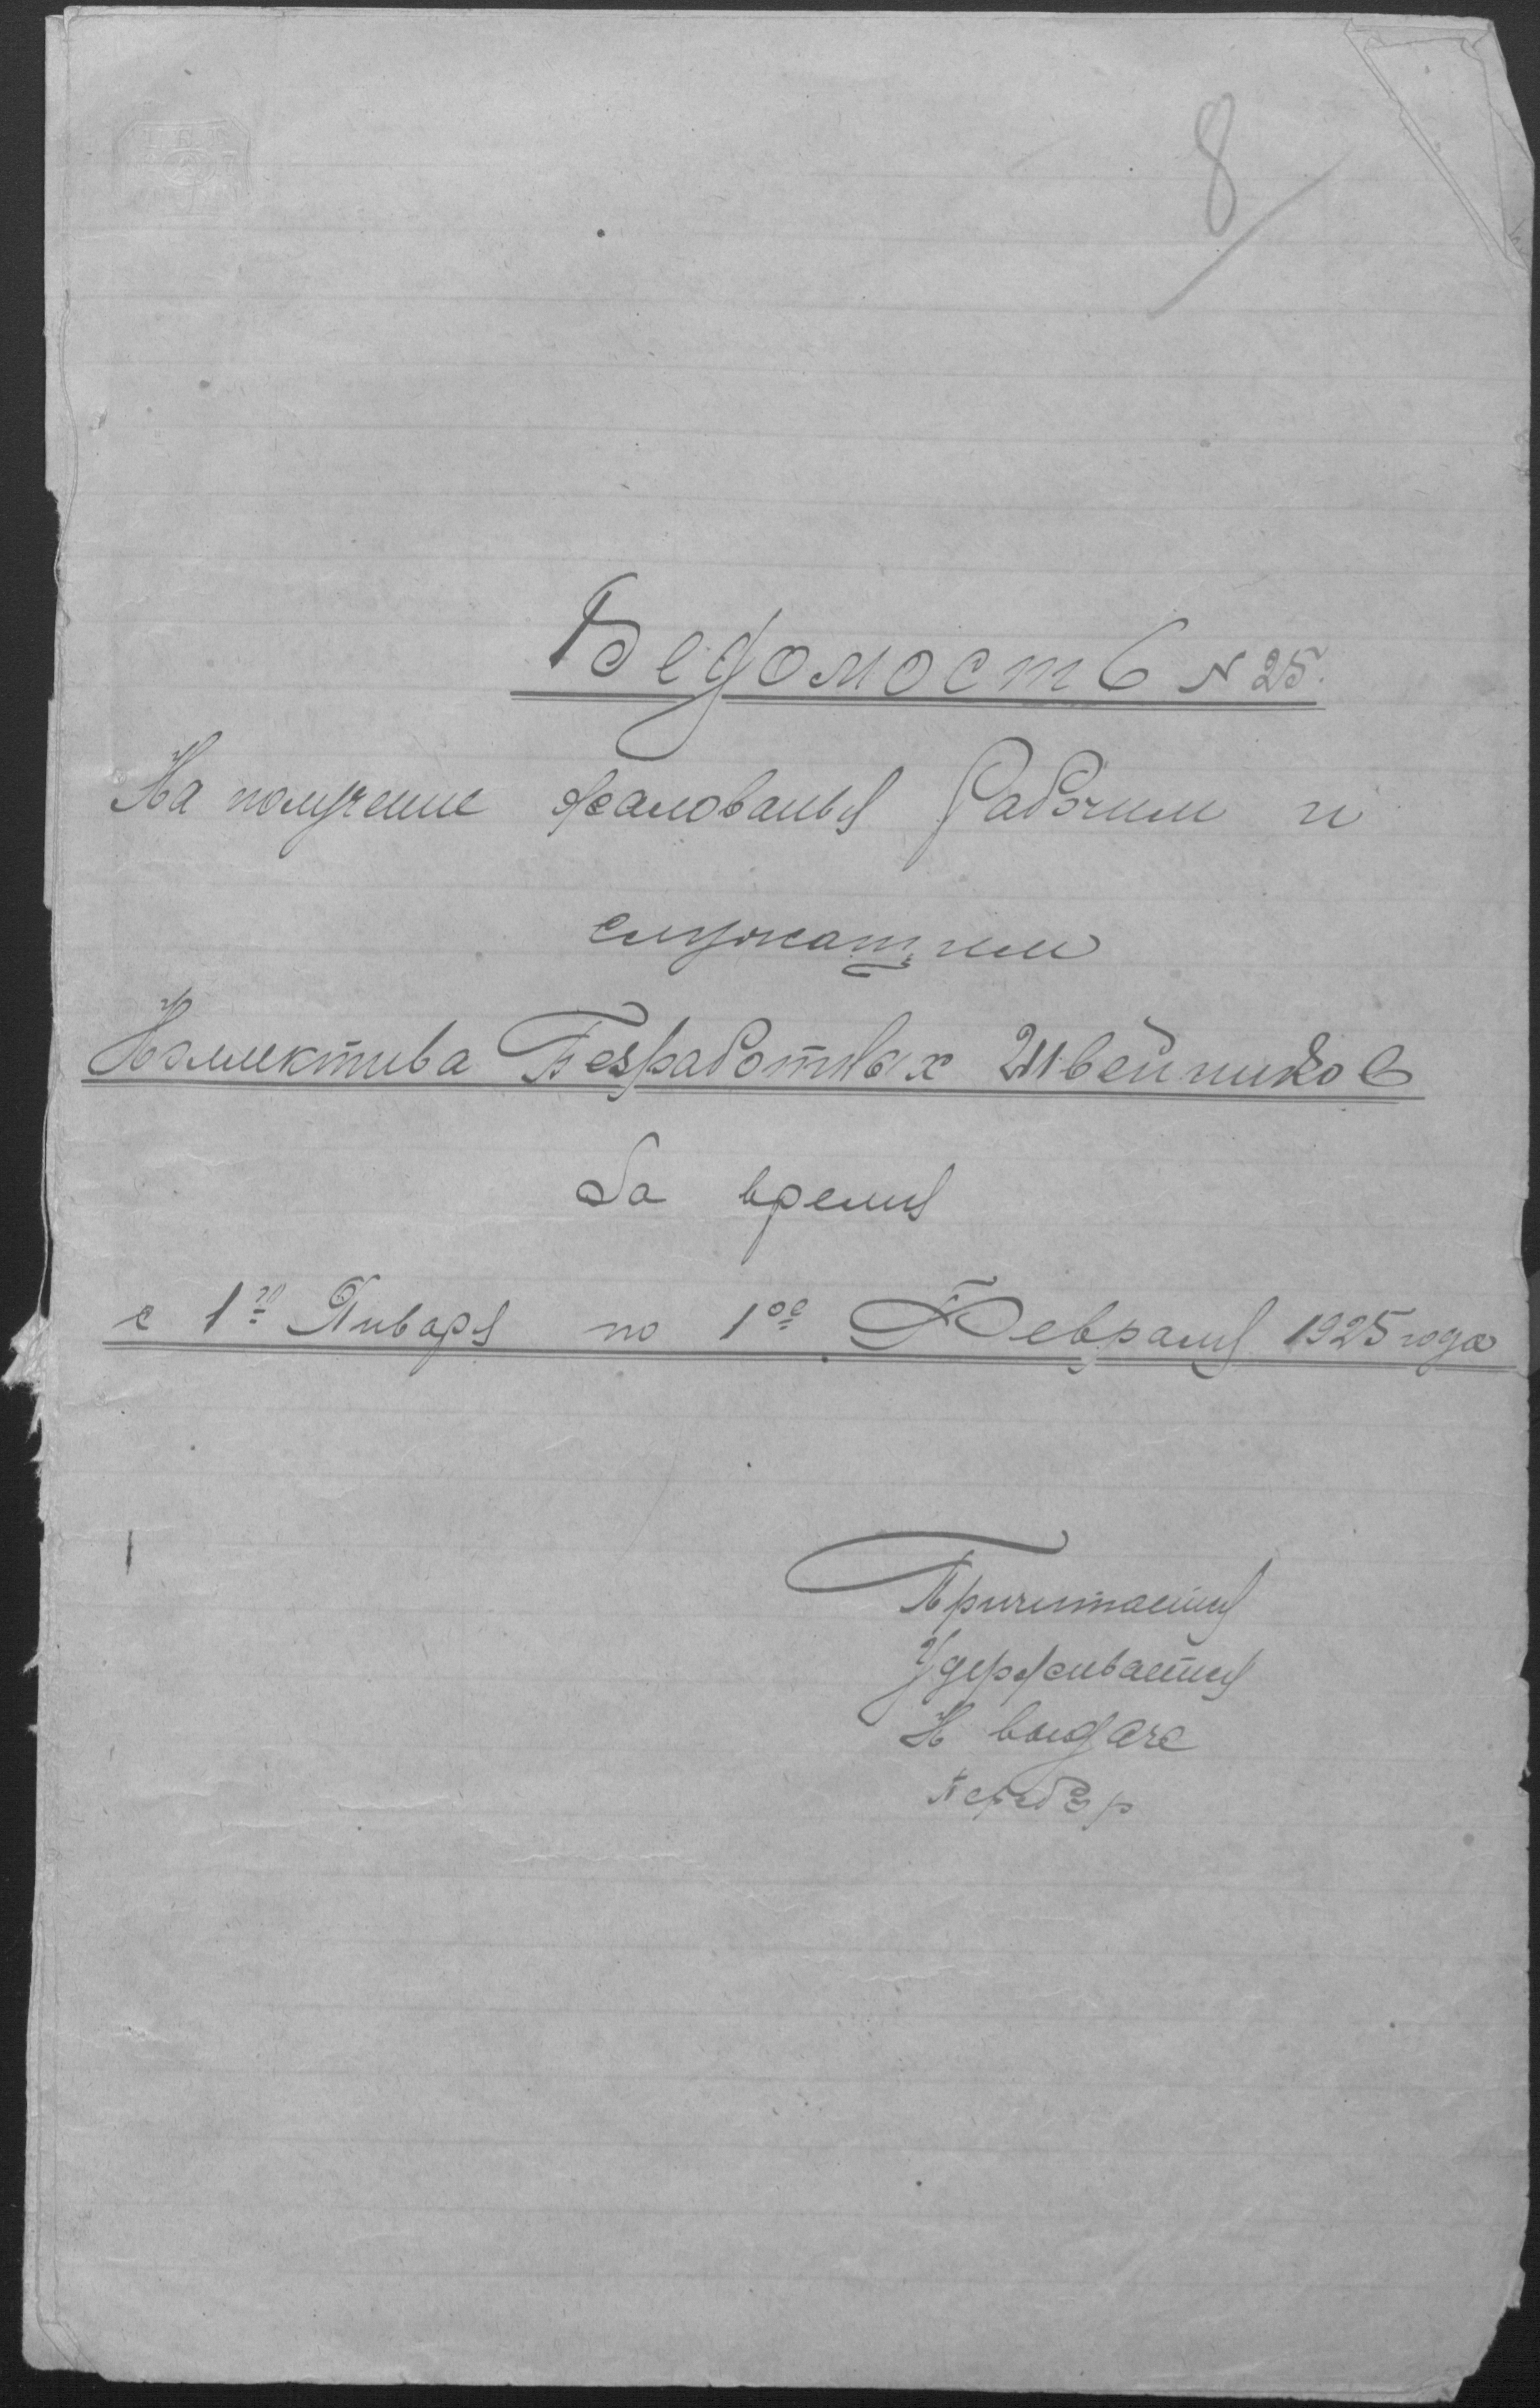 8
Ведомость N 25.
На получение жалованья Рабочим и
служащим
Коллектива Безработных Швейников
За время
с 1го Января по 1ое Февраля 1925 года
Причитается
Удерживается
К выдаче